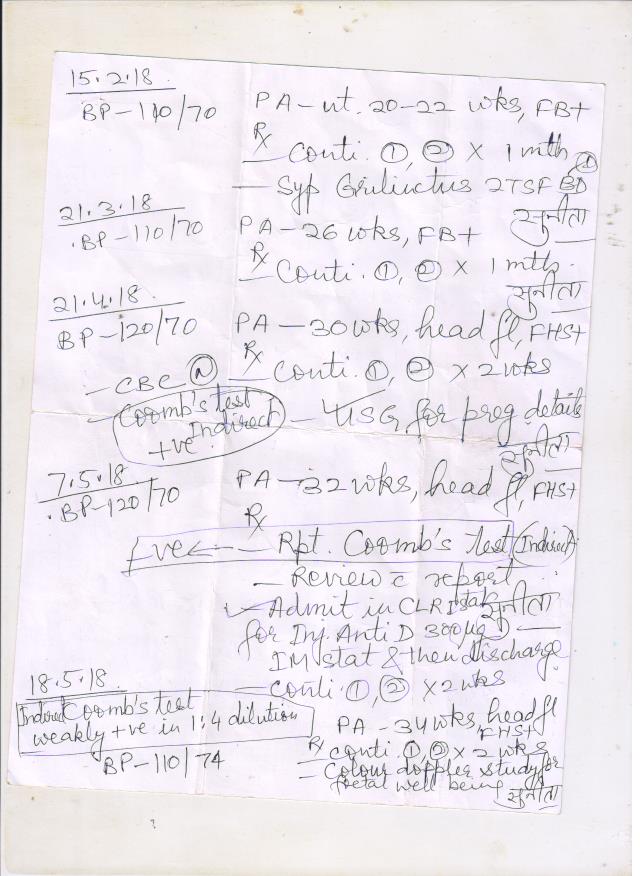 15.2.18
BP-110/70
PA - ut. 20-22 wks, FB+
Rx
- Conti. ①, ② x 1 mth
- Syp Grilinctus 2TSF BD ①
सुनीता
21.3.18
BP-110/70
PA-26 wks, FB+
Rx
- Conti. ①, ② x 1 mth.
सुनीता
21.4.18
BP-120/70
PA-30 wks, head fl, FHS+
Rx
- Conti. ①, ② x 2 wks
- CBC Ⓝ
- Coomb's test
Indirect
+ve
- USG for preg. details
सुनीता
7.5.18
BP-120/70
PA-32 wks, head fl, FHS+
Rx
+ve ← - Rpt. Coomb's test (Indirect)
- Review c̄ report
- Admit in CLR I stat
सुनीता
for Inj. Anti D 300 µg
IM stat & then discharge
- conti ①, ② x 2 wks
18.5.18
Indirect Coomb's test
weakly +ve in 1:4 dilution
BP-110/74
PA-34 wks, head fl
FHS+
Rx
- conti ①, ② x 2 wks
- Colour doppler study for
foetal well being
सुनीता